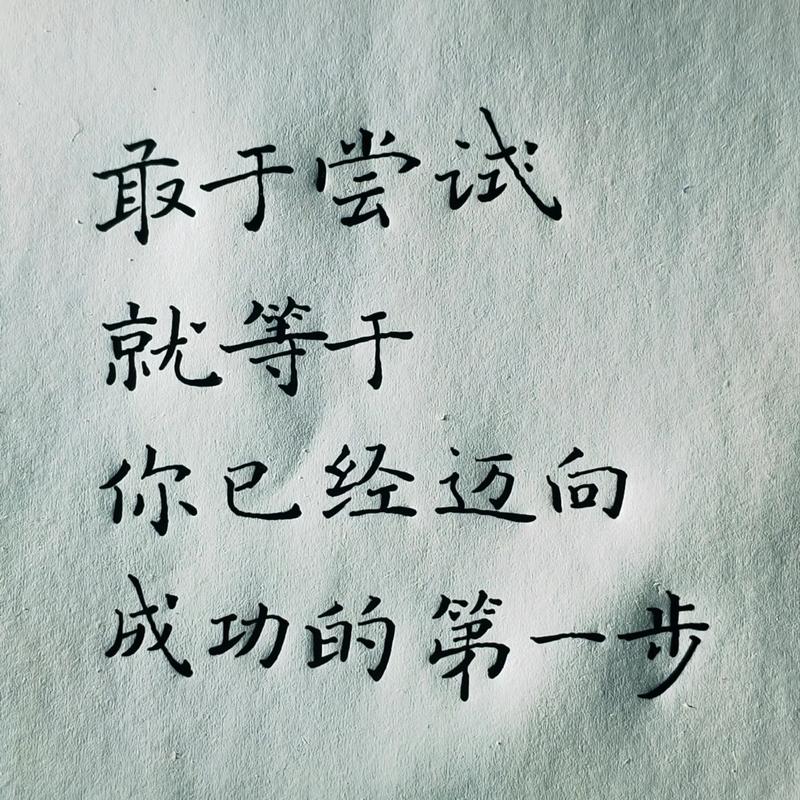 敢于尝试
就等于
你已经迈向
成功的第一步